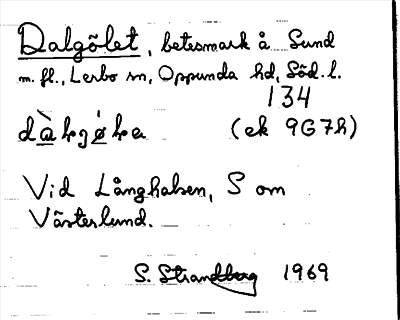 Dalgölet, betesmark å Sund
m. fl., Lerbo sn, Oppunda hd, Söd. l.
134
(ek 9G7h)
Vid Långhalsen, S om
Västerlund.
S. Strandberg 1969